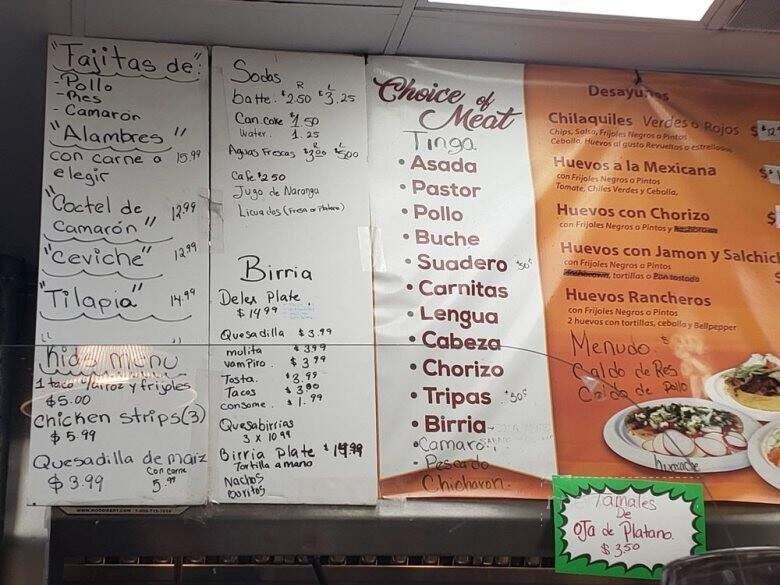 "Fajitas de:
-Pollo
-Res
-Camarón
"Alambres"
con carne a 15.99
elegir
"Coctel de 12.99
Camarón"
"Ceviche" 12.99
"Tilapia" 14.99
"Kids menu"
1 taco c/arroz y frijoles
$5.00
chicken strips(3)
$5.99
Quesadilla de maiz
$3.99 con carne 5.99
Sodas
R L
botte. $2.50 $3.25
Can. coke $1.50
Water. 1.25
R L
Aguas Frescas $3.00 $5.00
Cafe. $2.50
Jugo de Naranja
Licuados (Fresa o Platano)
Birria
Delex Plate
$14.99
Quesadilla $3.99
molita $3.99
vampiro. $3.99
Tosta. $3.99
Tacos $3.00
consome. $1.99
Quesabirrias
3 x 10.99
Birria plate $14.99
Tortilla a mano
Nachos
burritos
Choice of
Meat
Tinga
• Asada
• Pastor
• Pollo
• Buche
• Suadero .50¢
• Carnitas
• Lengua
• Cabeza
• Chorizo
• Tripas .50¢
• Birria
• Camaron
- Pescado
- Chicharon.
Desayunos
Chilaquiles Verdes o Rojos $12
Chips, Salsa, Frijoles Negros o Pintos
Cebolla, Huevos al gusto Revueltos o estrellados
Huevos a la Mexicana $
con Frijoles Negros o Pintos
Tomate, Chiles Verdes y Cebolla,
Huevos con Chorizo $
con Frijoles Negros o Pintos y
Huevos con Jamon y Salchich
con Frijoles Negros o Pintos
tortillas o Pan tostado
Huevos Rancheros
con Frijoles Negros o Pintos
2 huevos con tortillas, cebolla y Bellpepper
Menudo. $
Caldo de Res
Caldo de pollo
Huarache
Tamales
De
oja de Platano.
$3.50